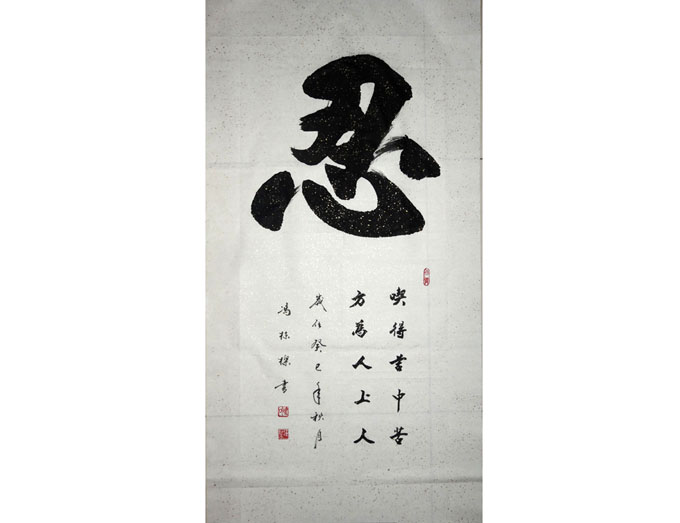 忍
喫得苦中苦
方為人上人
歲在癸巳年秋月
馮　　書